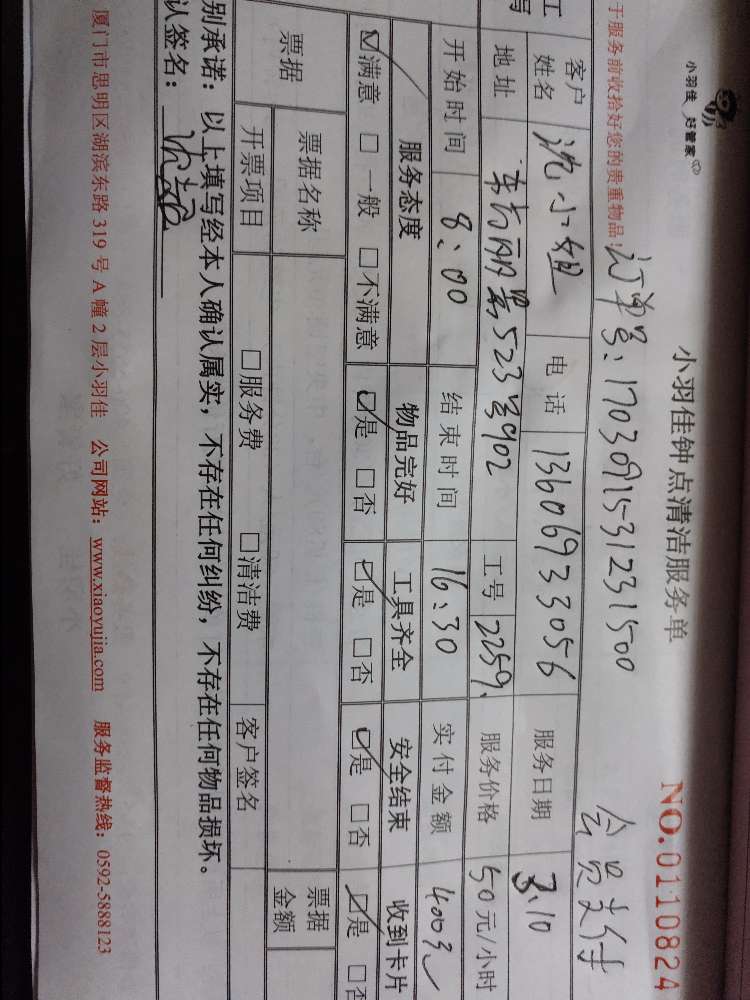 小羽佳 好管家
小羽佳钟点清洁服务单
NO.0110824
于服务前收拾好您的贵重物品!
订单号:1703091531231500
会员支付
工
写
客户姓名 沈小姐 电话 13606933056 服务日期 3.10
地址 523号902 工号 2259 服务价格 50元/小时
开始时间 8:00 结束时间 16:30 实付金额 400元
服务态度 物品完好 工具齐全 安全结束 收到卡片
☑满意 □一般 □不满意 ☑是 □否 ☑是 □否 ☑是 □否 ☑是 □否
票据 票据名称 票据金额
开票项目 □服务费 □清洁费 客户签名
别承诺:以上填写经本人确认属实,不存在任何纠纷,不存在任何物品损坏。
认签名:
厦门市思明区湖滨东路319号A幢2层小羽佳 公司网站:www.xiaoyujia.com 服务监督热线:0592-5888123